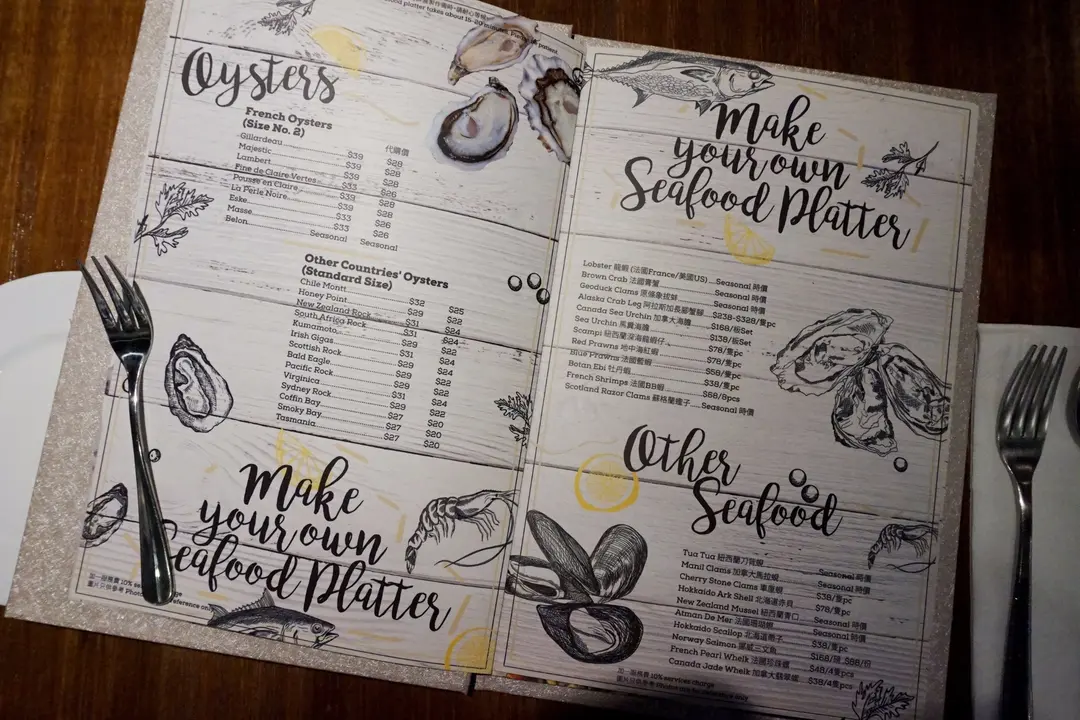 platter takes about 15-20 minutes. Please be patient
Oysters
French Oysters
(Size No. 2) 代購價
Gillardeau $39 $28
Majestic $39 $28
Lambert $39 $28
Fine de Claire Vertes $33 $26
Pousse en Claire $39 $28
La Perle Noire $39 $28
Eske $33 $26
Masse $33 $26
Belon Seasonal Seasonal
Other Countries' Oysters
(Standard Size)
Chile Montt $32 $25
Honey Point $29 $22
New Zealand Rock $31 $24
South Africa Rock $31 $24
Kumamoto $29 $22
Irish Gigas $31 $24
Scottish Rock $29
Bald Eagle $29 $22
Pacific Rock $29 $22
Virginica $31 $24
Sydney Rock $29
Coffin Bay $27 $20
Smoky Bay $27 $20
Tasmania $27 $20
Make
your own
Seafood Platter
加一服務費 10%
圖片只供參考 reference only
Make
your own
Seafood Platter
Lobster 龍蝦 (法國France/美國US) Seasonal 時價
Brown Crab 法國膏蟹 Seasonal 時價
Geoduck Clams 原條象拔蚌 Seasonal 時價
Alaska Crab Leg 阿拉斯加長腳蟹腳 $238-$328/隻pc
Canada Sea Urchin 加拿大海膽 $168/板Set
Sea Urchin 馬糞海膽 $138/板Set
Scampi 紐西蘭深海龍蝦仔 $78/隻pc
Red Prawns 地中海紅蝦 $78/隻pc
Blue Prawns 法國藍蝦 $58/隻pc
Botan Ebi 牡丹蝦 $38/隻pc
French Shrimps 法國BB蝦 $68/8pcs
Scotland Razor Clams 蘇格蘭蟶子 Seasonal 時價
Other
Seafood
Tua Tua 紐西蘭刀背蜆 Seasonal 時價
Manil Clams 加拿大馬拉蜆 Seasonal 時價
Cherry Stone Clams 車厘蜆 $38/隻pc
Hokkaido Ark Shell 北海道赤貝 $78/隻pc
New Zealand Mussel 紐西蘭青口 Seasonal 時價
Atman De Mer 法國珊瑚螺 Seasonal 時價
Hokkaido Scallop 北海道帶子 $38/隻pc
Norway Salmon 挪威三文魚 $168/ $88/份
French Pearl Whelk 法國珍珠螺 $48/4隻pcs
Canada Jade Whelk 加拿大翡翠螺 $38/4隻pcs
加一服務費 10% services charge
圖片只供參考 Photos are for reference only